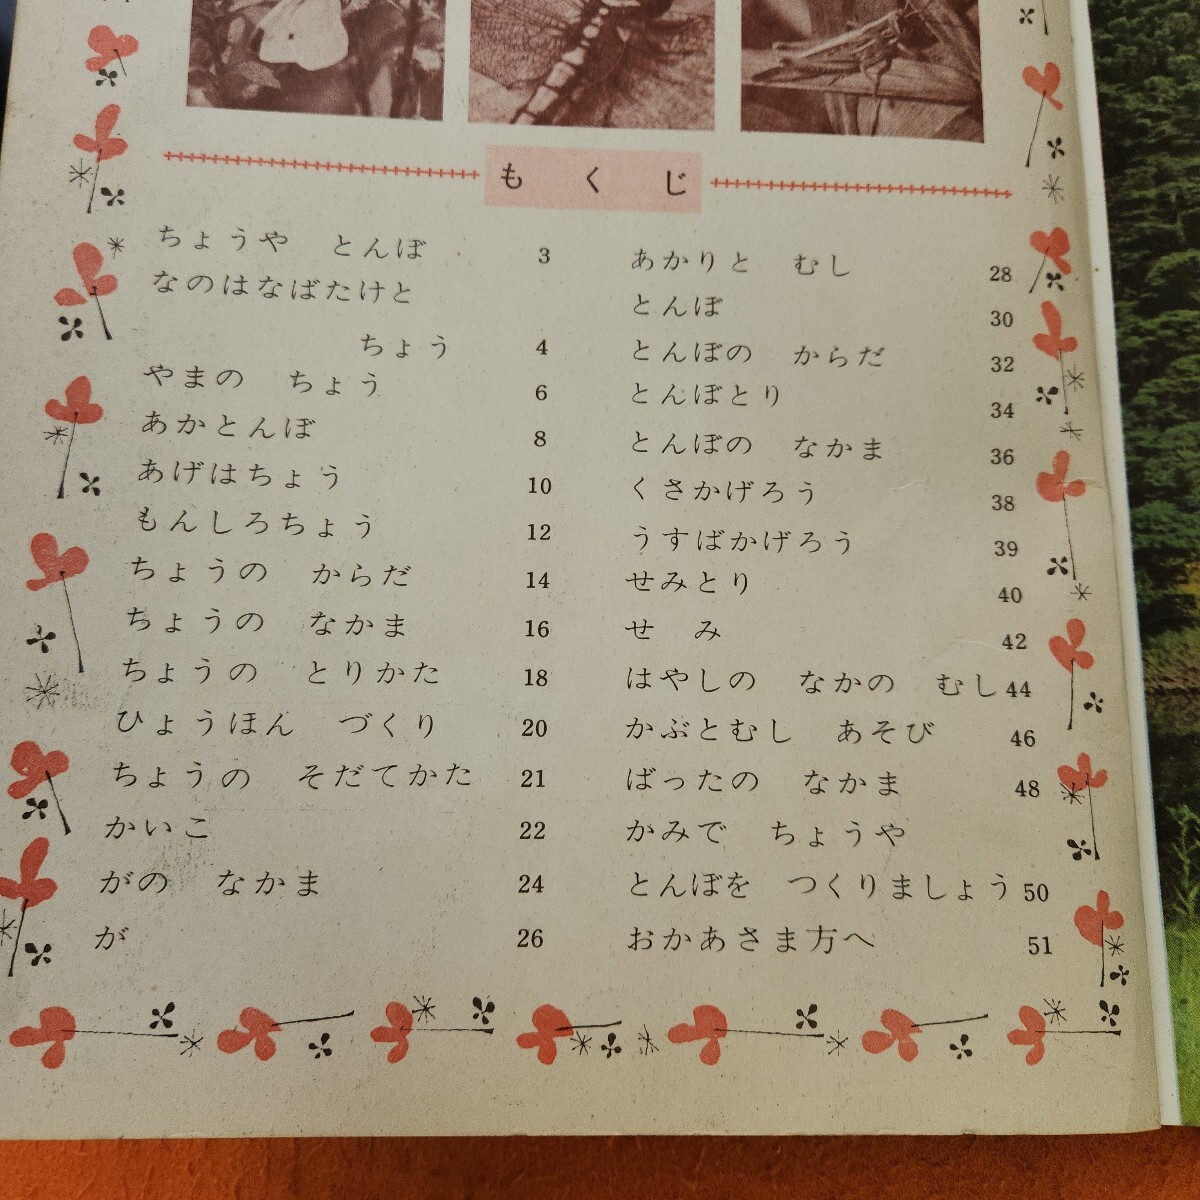 もくじ
ちょうや とんぼ 3
なのはなばたけと
ちょう 4
やまの ちょう 6
あかとんぼ 8
あげはちょう 10
もんしろちょう 12
ちょうの からだ 14
ちょうの なかま 16
ちょうの とりかた 18
ひょうほん づくり 20
ちょうの そだてかた 21
かいこ 22
がの なかま 24
が 26
あかりと むし 28
とんぼ 30
とんぼの からだ 32
とんぼとり 34
とんぼの なかま 36
くさかげろう 38
うすばかげろう 39
せみとり 40
せ み 42
はやしの なかの むし 44
かぶとむし あそび 46
ばったの なかま 48
かみで ちょうや
とんぼを つくりましょう 50
おかあさま方へ 51